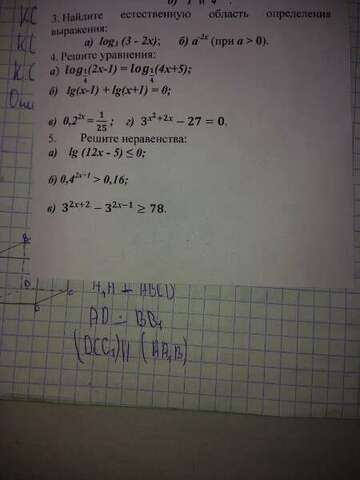 3. Найдите естественную область определения
выражения:
а) log₃ (3 - 2x); б) a⁻²ˣ (при a > 0).
4. Решите уравнения:
а) log₁/₄(2x-1) = log₁/₄(4x+5);
б) lg(x-1) + lg(x+1) = 0;
в) 0,2²ˣ = 1/25 ; г) 3^(x²+2x) − 27 = 0.
5. Решите неравенства:
а) lg (12x - 5) ≤ 0;
б) 0,4²ˣ⁺¹ > 0,16;
в) 3²ˣ⁺² − 3²ˣ⁻¹ ≥ 78.
AD - BC₁
(DCC₁) || (AA₁B)